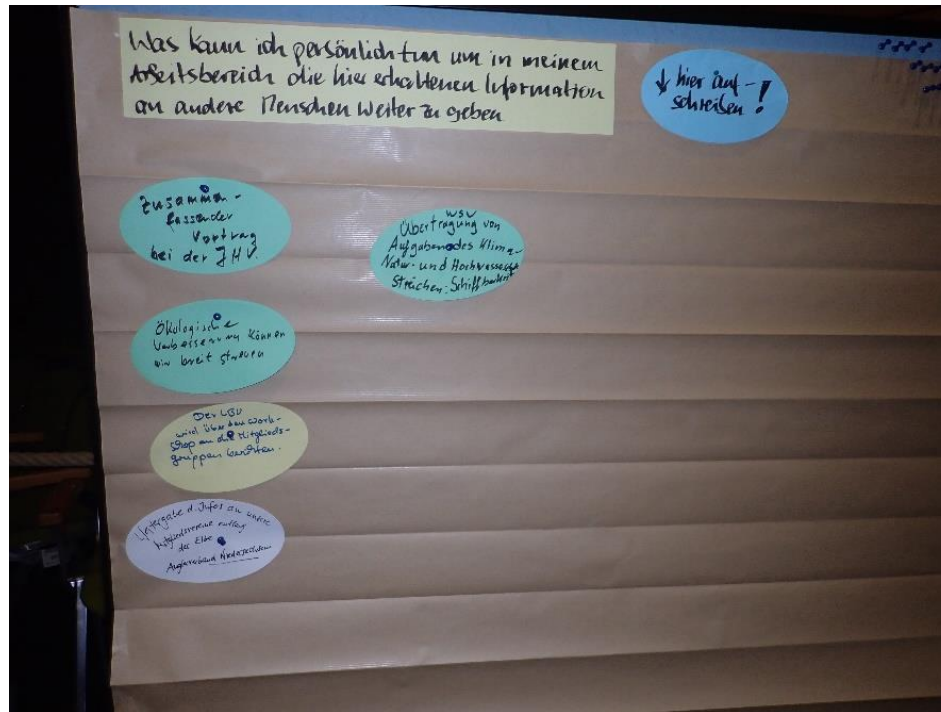 Was kann ich persönlich tun um in meinem
Arbeitsbereich die hier erhaltenen Information
an andere Menschen weiter zu geben
↓ hier auf-
schreiben!
Zusammen-
fassender
Vortrag
bei der JHV.
WSV
Übertragung von
Aufgaben des Klima-
Natur- und Hochwasser
Streichen: Schiffbarkeit
Ökologische
Verbesserung können
wir breit streuen
Der
wird über den Work-
shop an die Mitglieds-
gruppen berichten.
Weitergabe d. Infos an unsere
Mitgliedsvereine entlang
der Elbe
Anglerverband Niedersachsen